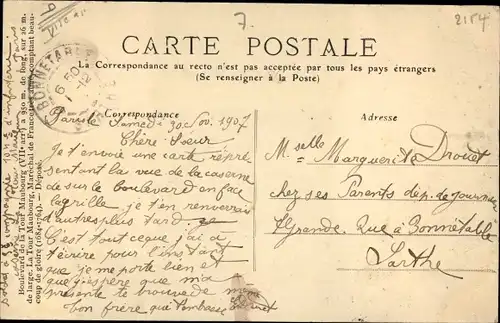 7.
2154
CARTE POSTALE
La Correspondance au recto n'est pas acceptée par tous les pays étrangers
(Se renseigner à la Poste)
BONNETABLE
Correspondance
Adresse
Paris Samedi 30 Nov. 1907
Chère Sœur
Je t'envoie une carte représ
sentant la vue de la caserne
de sur le boulevard en face
la grille je t'en renverrai
d'autres plus tard
C'est tout ce que j'ai a
t'écrire pour l'instant
que je me porte bien et
que j'espère que ma
présente te trouve de même
Ton frère que t'embrasse
Mselle Marguerite Drouet
chez ses Parents de p. de journée
Grande Rue à Bonnétable
Sarthe
Boulevard de la Tour Maubourg (VIIe arrt) a 950 m. de long. sur 26 m.
de large. La Tour Maubourg, Maréchal de France, tenant au comptant beau-
coup de gloire (1684-1764). — Déposé.